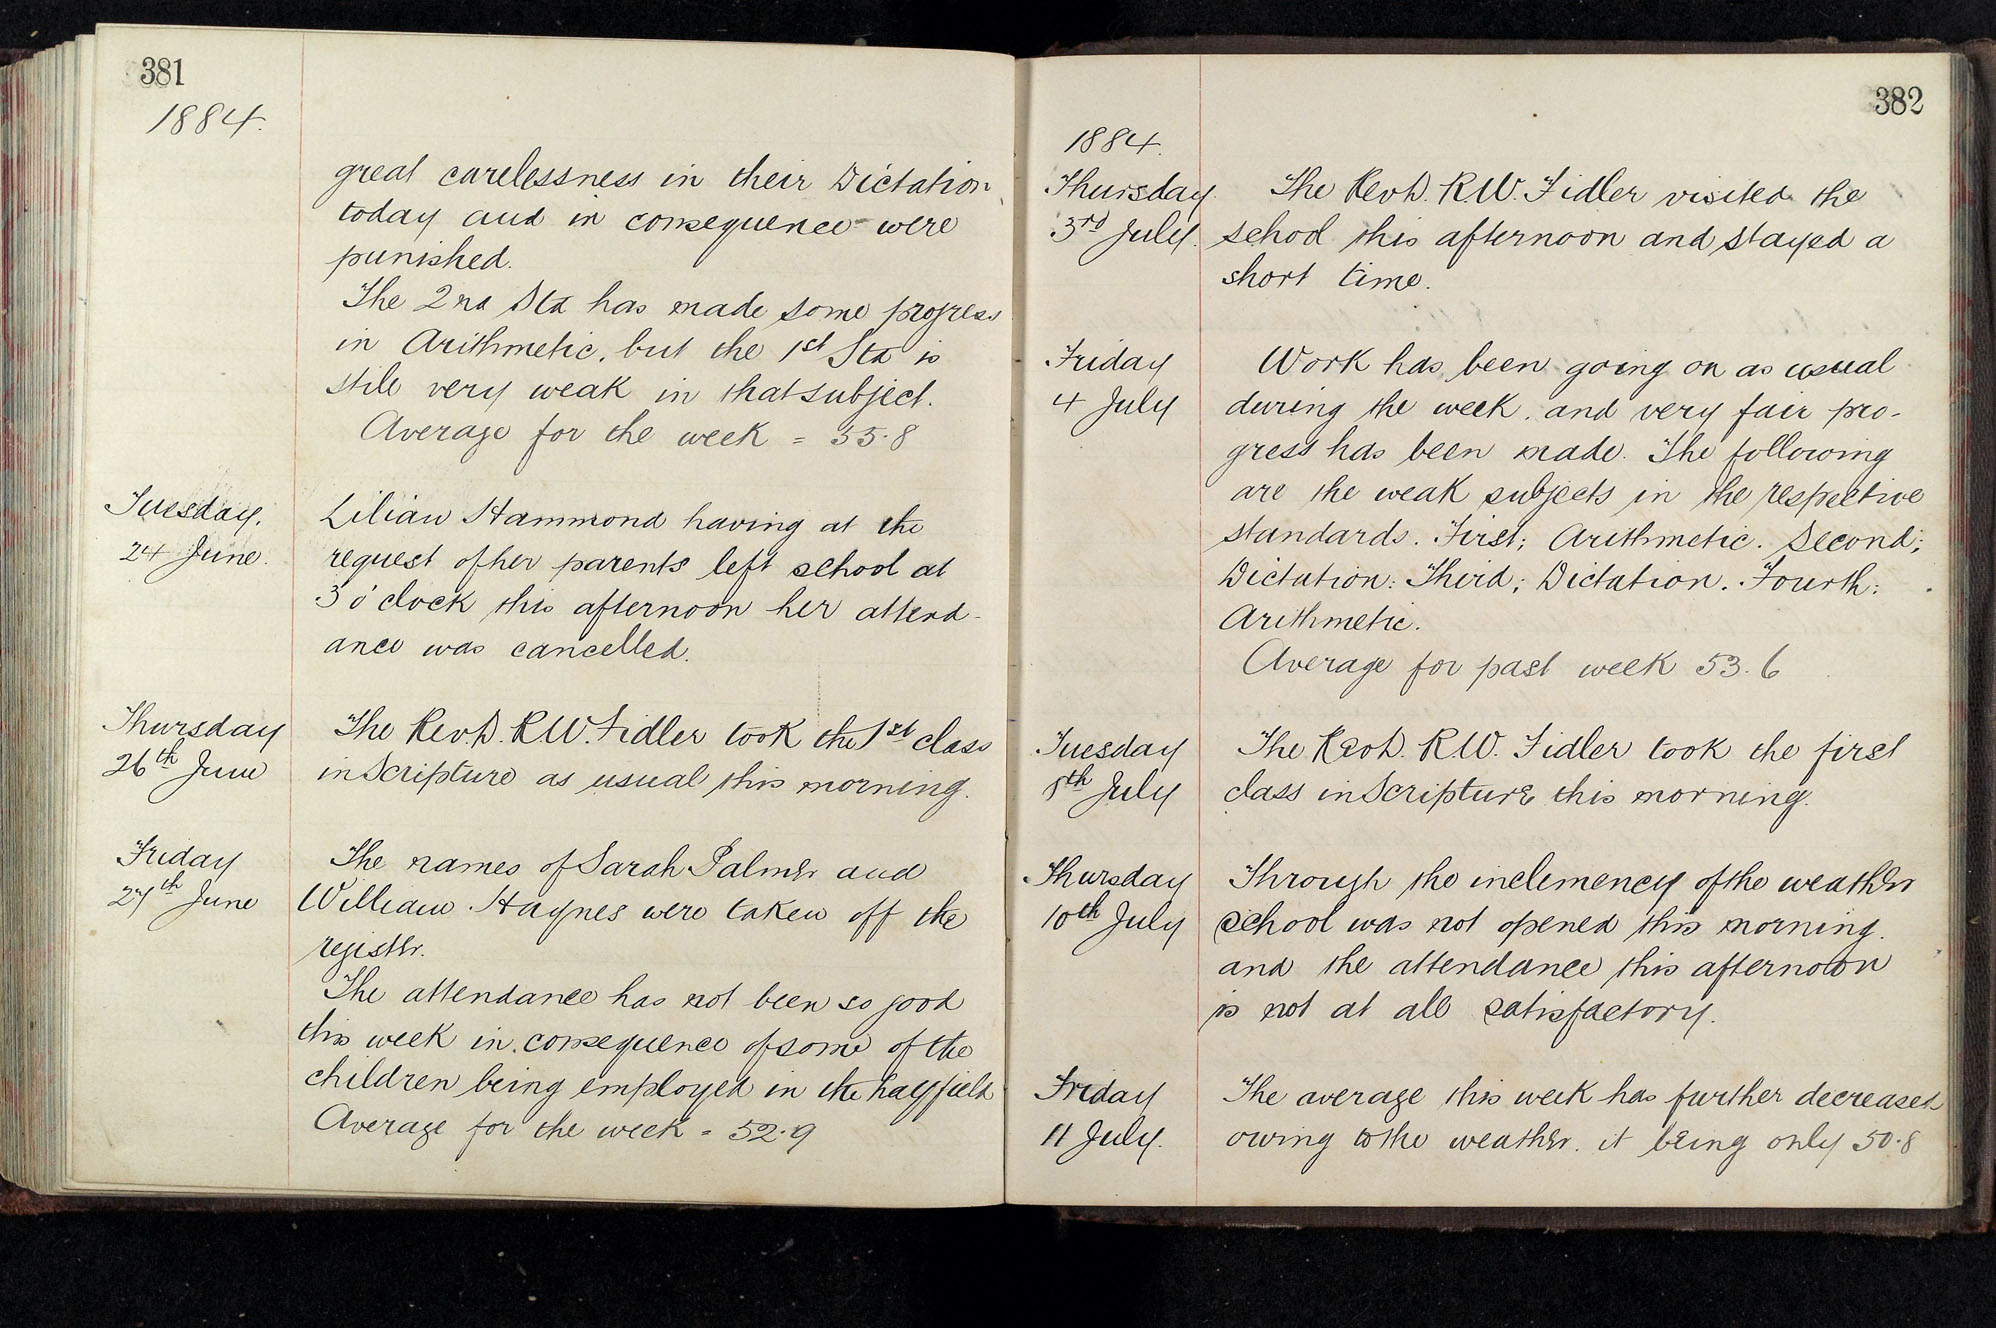 381
1884.
great carelessness in their Dictation
today and in consequence were
punished.
The 2nd Std has made some progress
in Arithmetic, but the 1st Std is
still very weak in that subject.
Average for the week = 55.8
Tuesday,
24 June.
Lilian Hammond having at the
request of her parents left school at
3 o'clock this afternoon her attend-
ance was cancelled.
Thursday
26th June
The Revd. R.W. Fidler took the 1st class
in Scripture as usual this morning.
Friday
27th June
The names of Sarah Palmer and
William Haynes were taken off the
register.
The attendance has not been so good
this week in consequence of some of the
children being employed in the hayfield
Average for the week = 52.9
382
1884.
Thursday
3rd July.
The Revd. R.W. Fidler visited the
school this afternoon and stayed a
short time.
Friday
4 July
Work has been going on as usual
during the week, and very fair pro-
gress has been made. The following
are the weak subjects in the respective
standards. First; Arithmetic. Second;
Dictation: Third; Dictation. Fourth:
Arithmetic.
Average for past week 53.6
Tuesday
8th July
The Revd. R.W. Fidler took the first
class in Scripture this morning.
Thursday
10th July
Through the inclemency of the weather
school was not opened this morning.
and the attendance this afternoon
is not at all satisfactory.
Friday
11 July.
The average this week has further decreased
owing to the weather. it being only 50.8